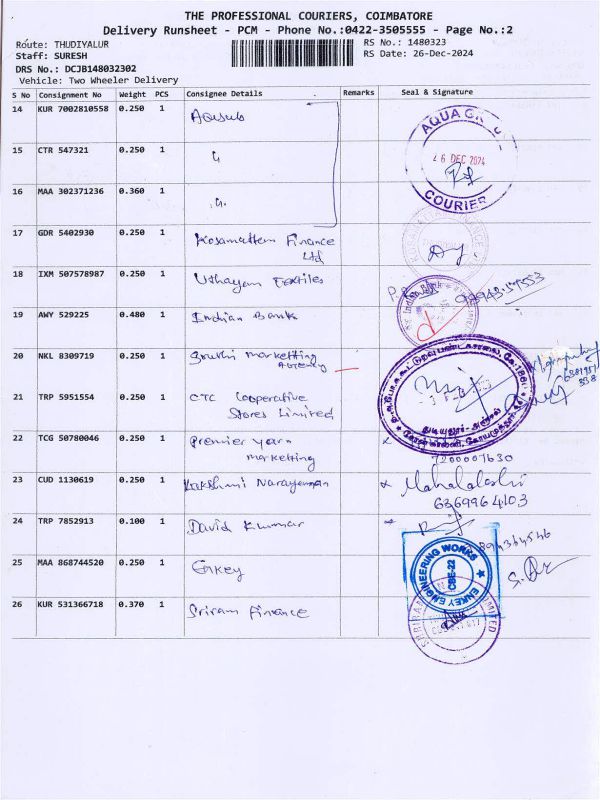 THE PROFESSIONAL COURIERS, COIMBATORE
Delivery Runsheet - PCM - Phone No.:0422-3505555 - Page No.:2
Route: THUDIYALUR
RS No.: 1480323
Staff: SURESH
RS Date: 26-Dec-2024
DRS No.: DCJB148032302
Vehicle: Two Wheeler Delivery
S No Consignment No Weight PCS Consignee Details Remarks Seal & Signature
14 KUR 7002810558 0.250 1
AQUA
15 CTR 547321 0.250 1 "
26 DEC 2024
16 MAA 302371236 0.360 1 "
COURIER
17 GDR 5402930 0.250 1 Kosamattam Finance
Ltd
18 IXM 507578987 0.250 1 Uthayam Textiles
19 AWY 529225 0.480 1 Indian Bank
20 NKL 8309719 0.250 1 Sruthi Marketting
Agency
21 TRP 5951554 0.250 1 CTC Cooperative
Stores Limited
துடியலூர்
22 TCG 50780046 0.250 1 Premier yarn
marketting
7200007630
23 CUD 1130619 0.250 1 Lakshmi Narayanan
Mahalalashi
6369964103
24 TRP 7852913 0.100 1 David Kumar
25 MAA 868744520 0.250 1 Enkey
ENKEY ENGINEERING WORKS
CBE-22
26 KUR 531366718 0.370 1 Sriram Finance